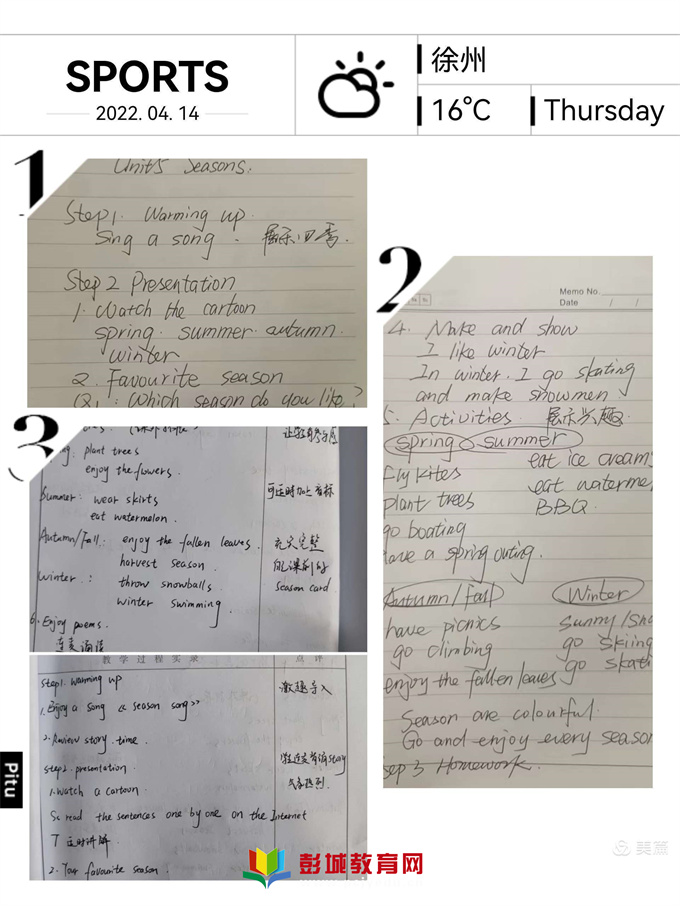 SPORTS
2022. 04. 14
徐州
16℃
Thursday
1
Unit5 Seasons.
Step1. Warming up.
Sing a song. 展示四季.
Step 2 Presentation
1. Watch the cartoon
spring. summer. autumn.
winter
2. Favourite season
Q1: Which season do you like?
2
Memo No.
Date / /
4. Make and show
I like winter
In winter. I go skating
and make snowmen
5. Activities. 展示兴趣.
spring summer
fly kites eat ice cream
plant trees eat waterme
go boating BBQ
have a spring outing.
Autumn/Fall Winter
have picnics sunny/sno
go climbing go skiing
enjoy the fallen leaves go skati
Season are colourful.
Go and enjoy every season
Step 3 Homework.
3
plant trees
enjoy the flowers.
Summer: wear skirts 可适时加上音标
eat watermelon.
Autumn/Fall: enjoy the fallen leaves. 充实完整
harvest season. 课前的
Winter: throw snowballs. season card
winter swimming.
6. Enjoy poems.
教学过程实录 点评
Step1. Warming up 激趣导入
1. Enjoy a song << season song>>
2. Review story time.
Step2. presentation. story
1. Watch a cartoon.
Ss read the sentences one by one on the Internet
T 适时讲解
2. Your favourite season.
Pitu
彭城教育网
美篇